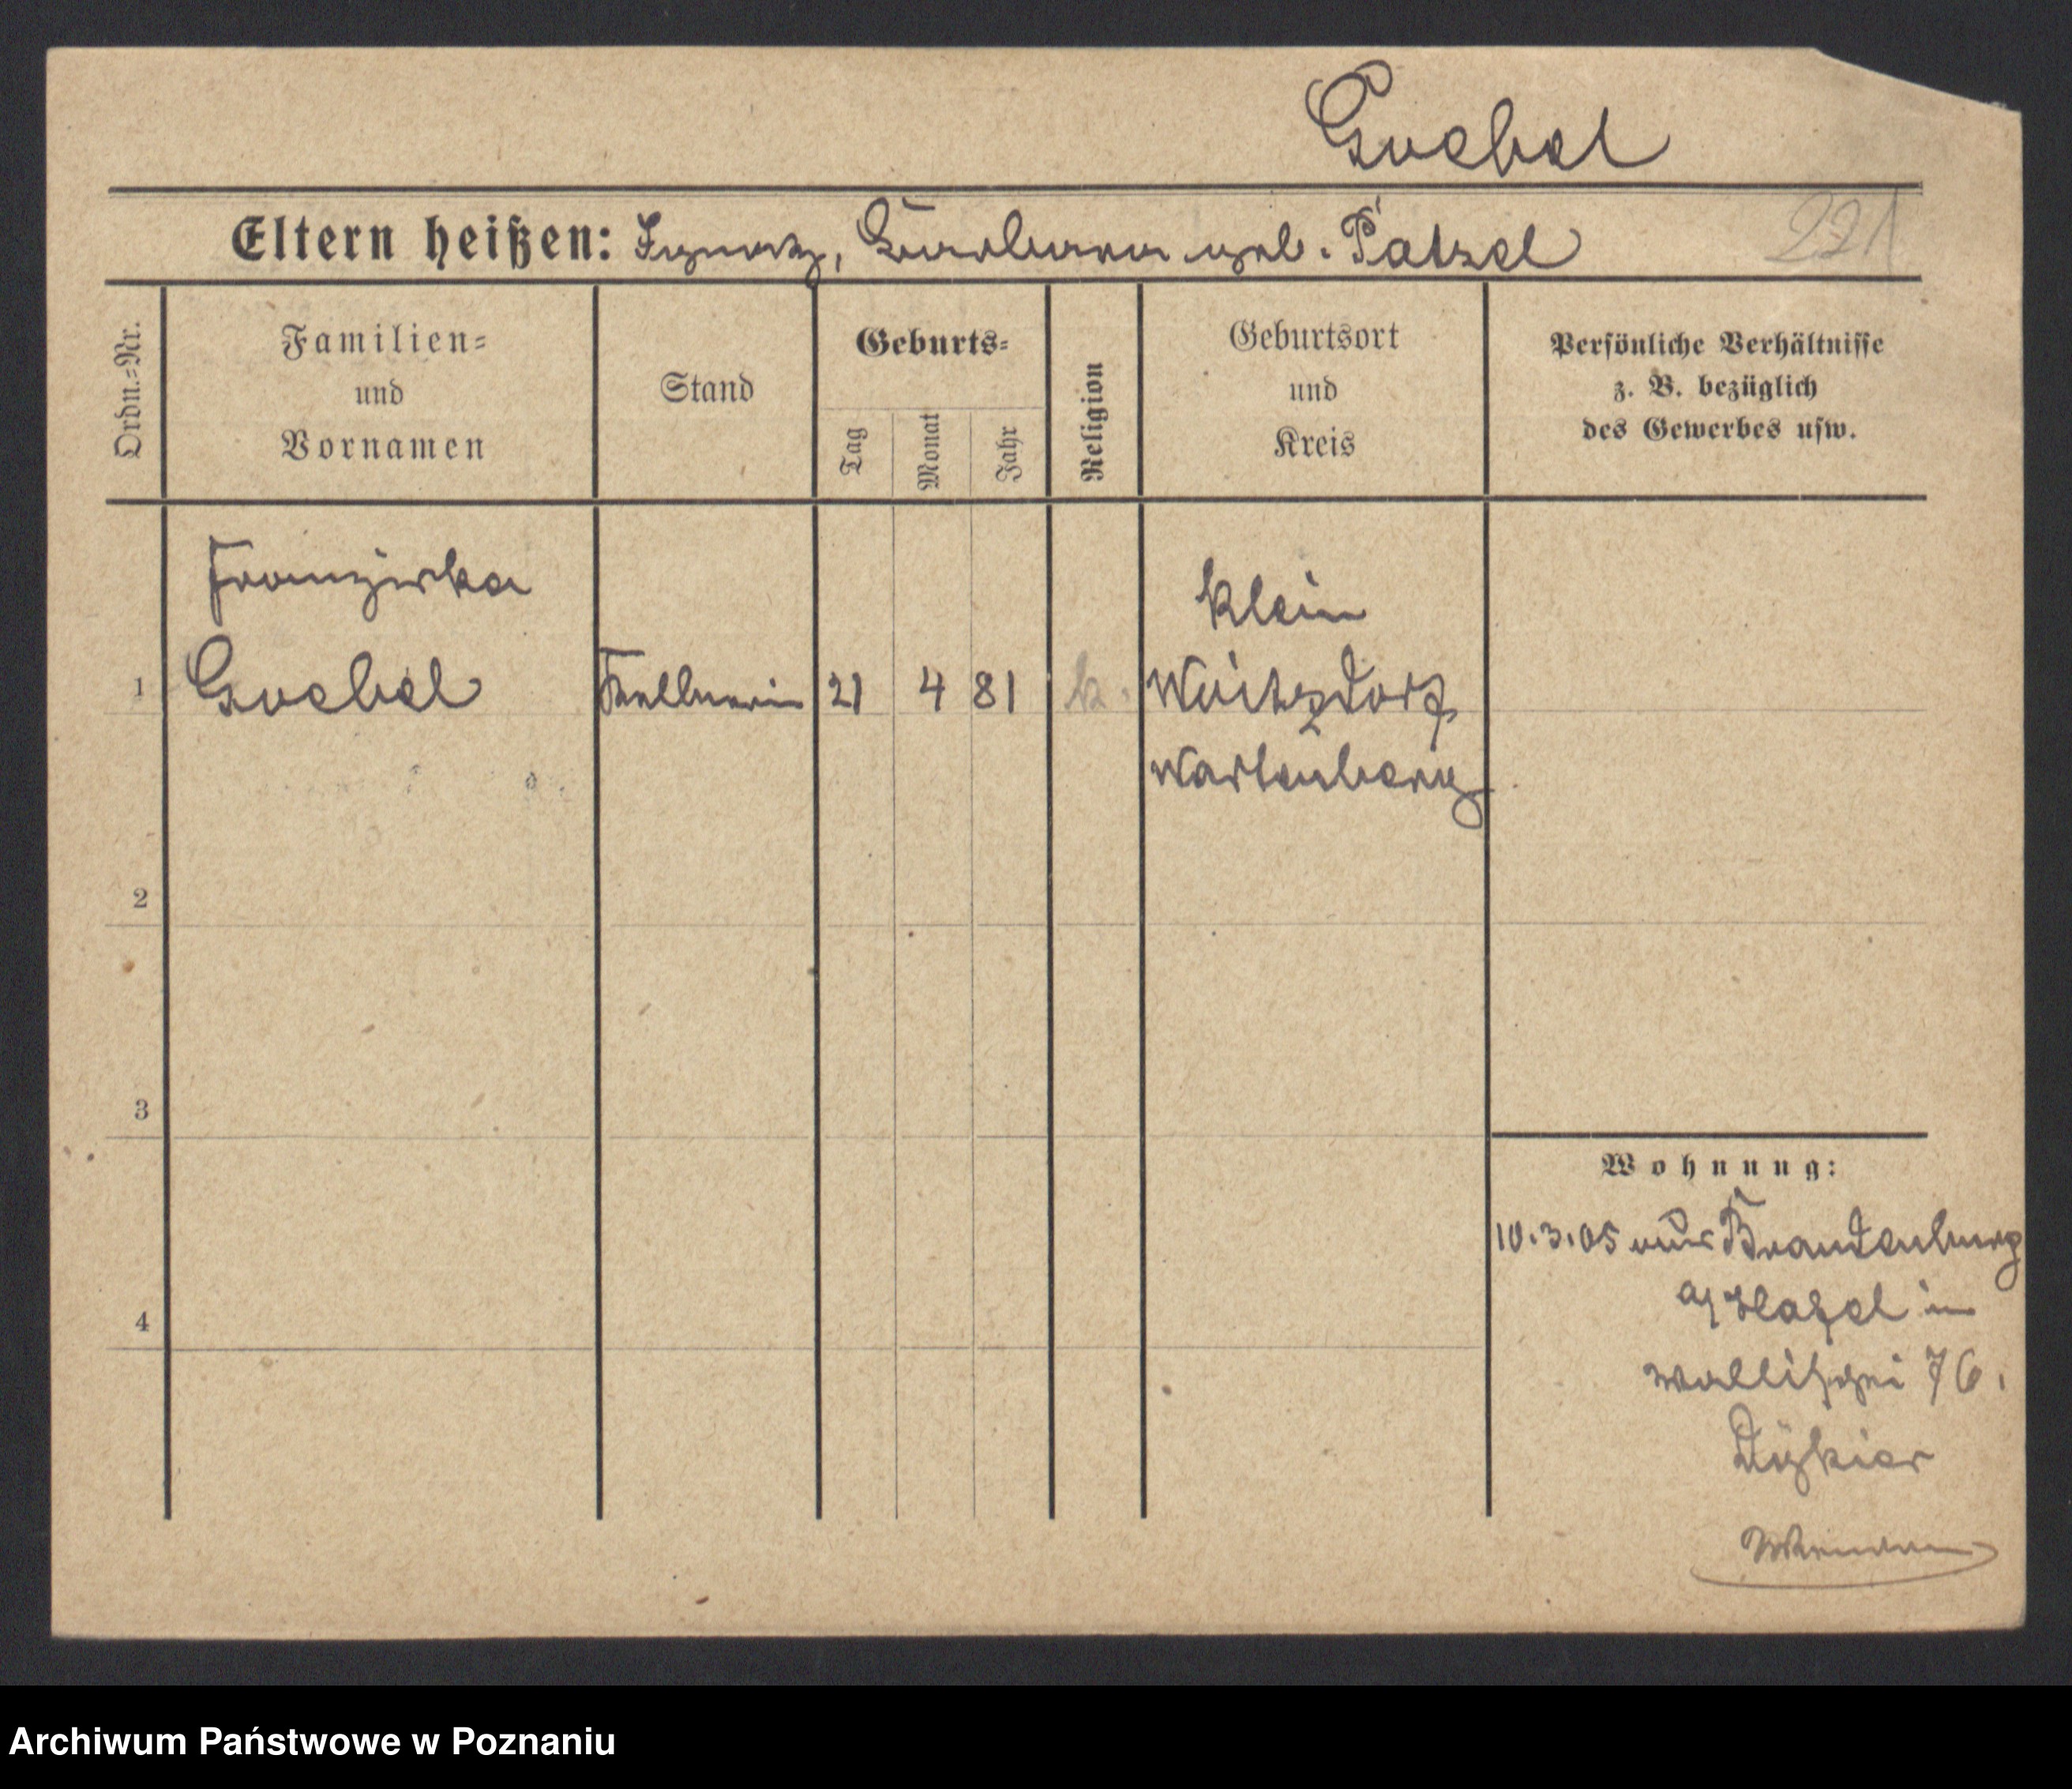 Goebel
Eltern heißen: Ignatz, Barbara geb. Patzel
221
Ordn.=Nr.
Familien=
und
Vornamen
Stand
Geburts=
Tag
Monat
Jahr
Religion
Geburtsort
und
Kreis
Persönliche Verhältnisse
z. B. bezüglich
des Gewerbes usw.
Franziska
Goebel
1
Kellnerin
21
4
81
k.
Klein
Woitzdorf
Wartenberg
2
3
4
Wohnung:
10.3.05 aus Brandenburg
a/Hafel in
Wallischei 76.